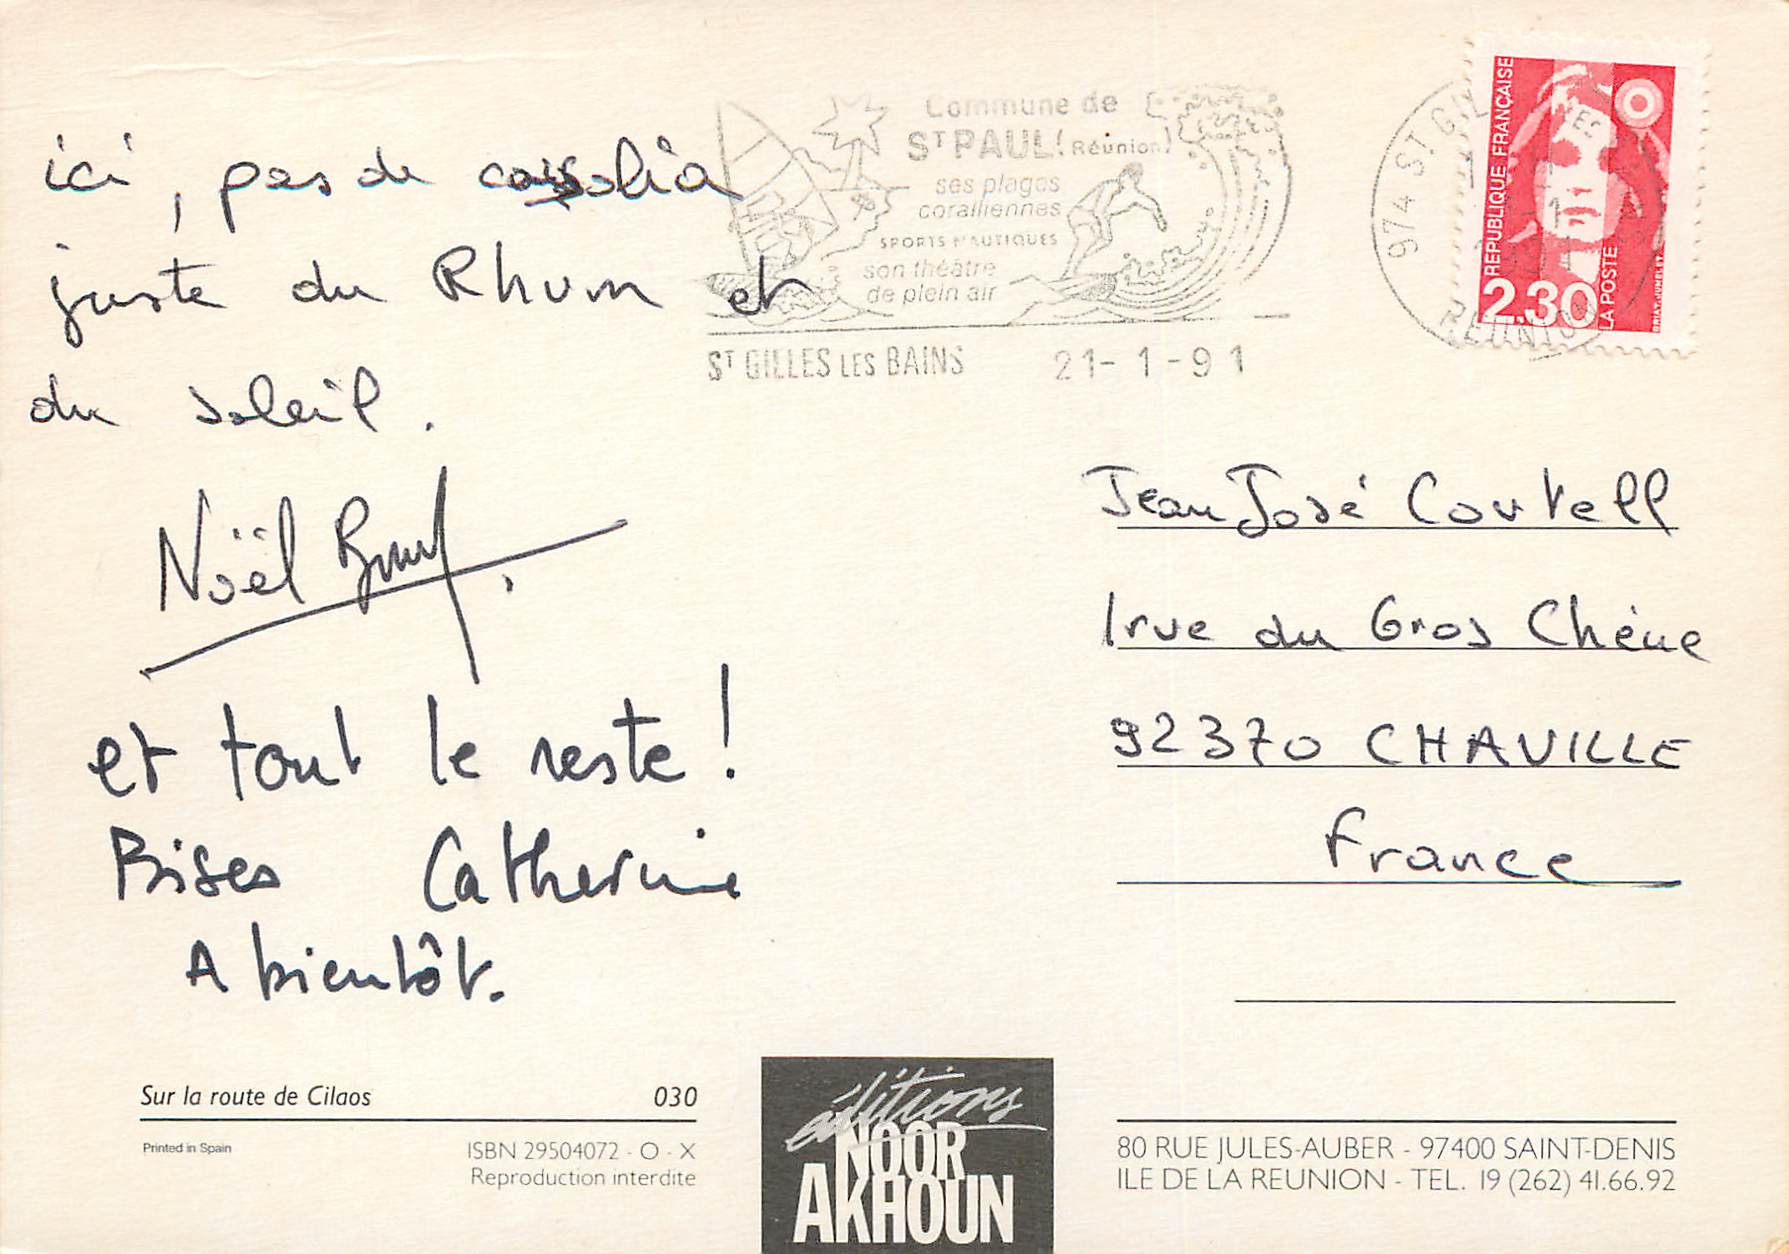 ici, pas de
juste du Rhum et
du soleil.
Noël
et tout le reste !
Bises Catherine
A bientôt.
Commune de
ST PAUL (Réunion)
ses plages
coralliennes
SPORTS NAUTIQUES
son théâtre
de plein air
ST GILLES LES BAINS 21-1-91
974 ST GILLES
REUNION
REPUBLIQUE FRANÇAISE
2,30
LA POSTE
BRIAT-JUMELET
Jean José Courtell
1 rue du Gros Chêne
92370 CHAVILLE
France
Sur la route de Cilaos 030
Printed in Spain
ISBN 29504072 - O - X
Reproduction interdite
éditions
NOOR
AKHOUN
80 RUE JULES-AUBER - 97400 SAINT-DENIS
ILE DE LA REUNION - TEL. 19 (262) 41.66.92